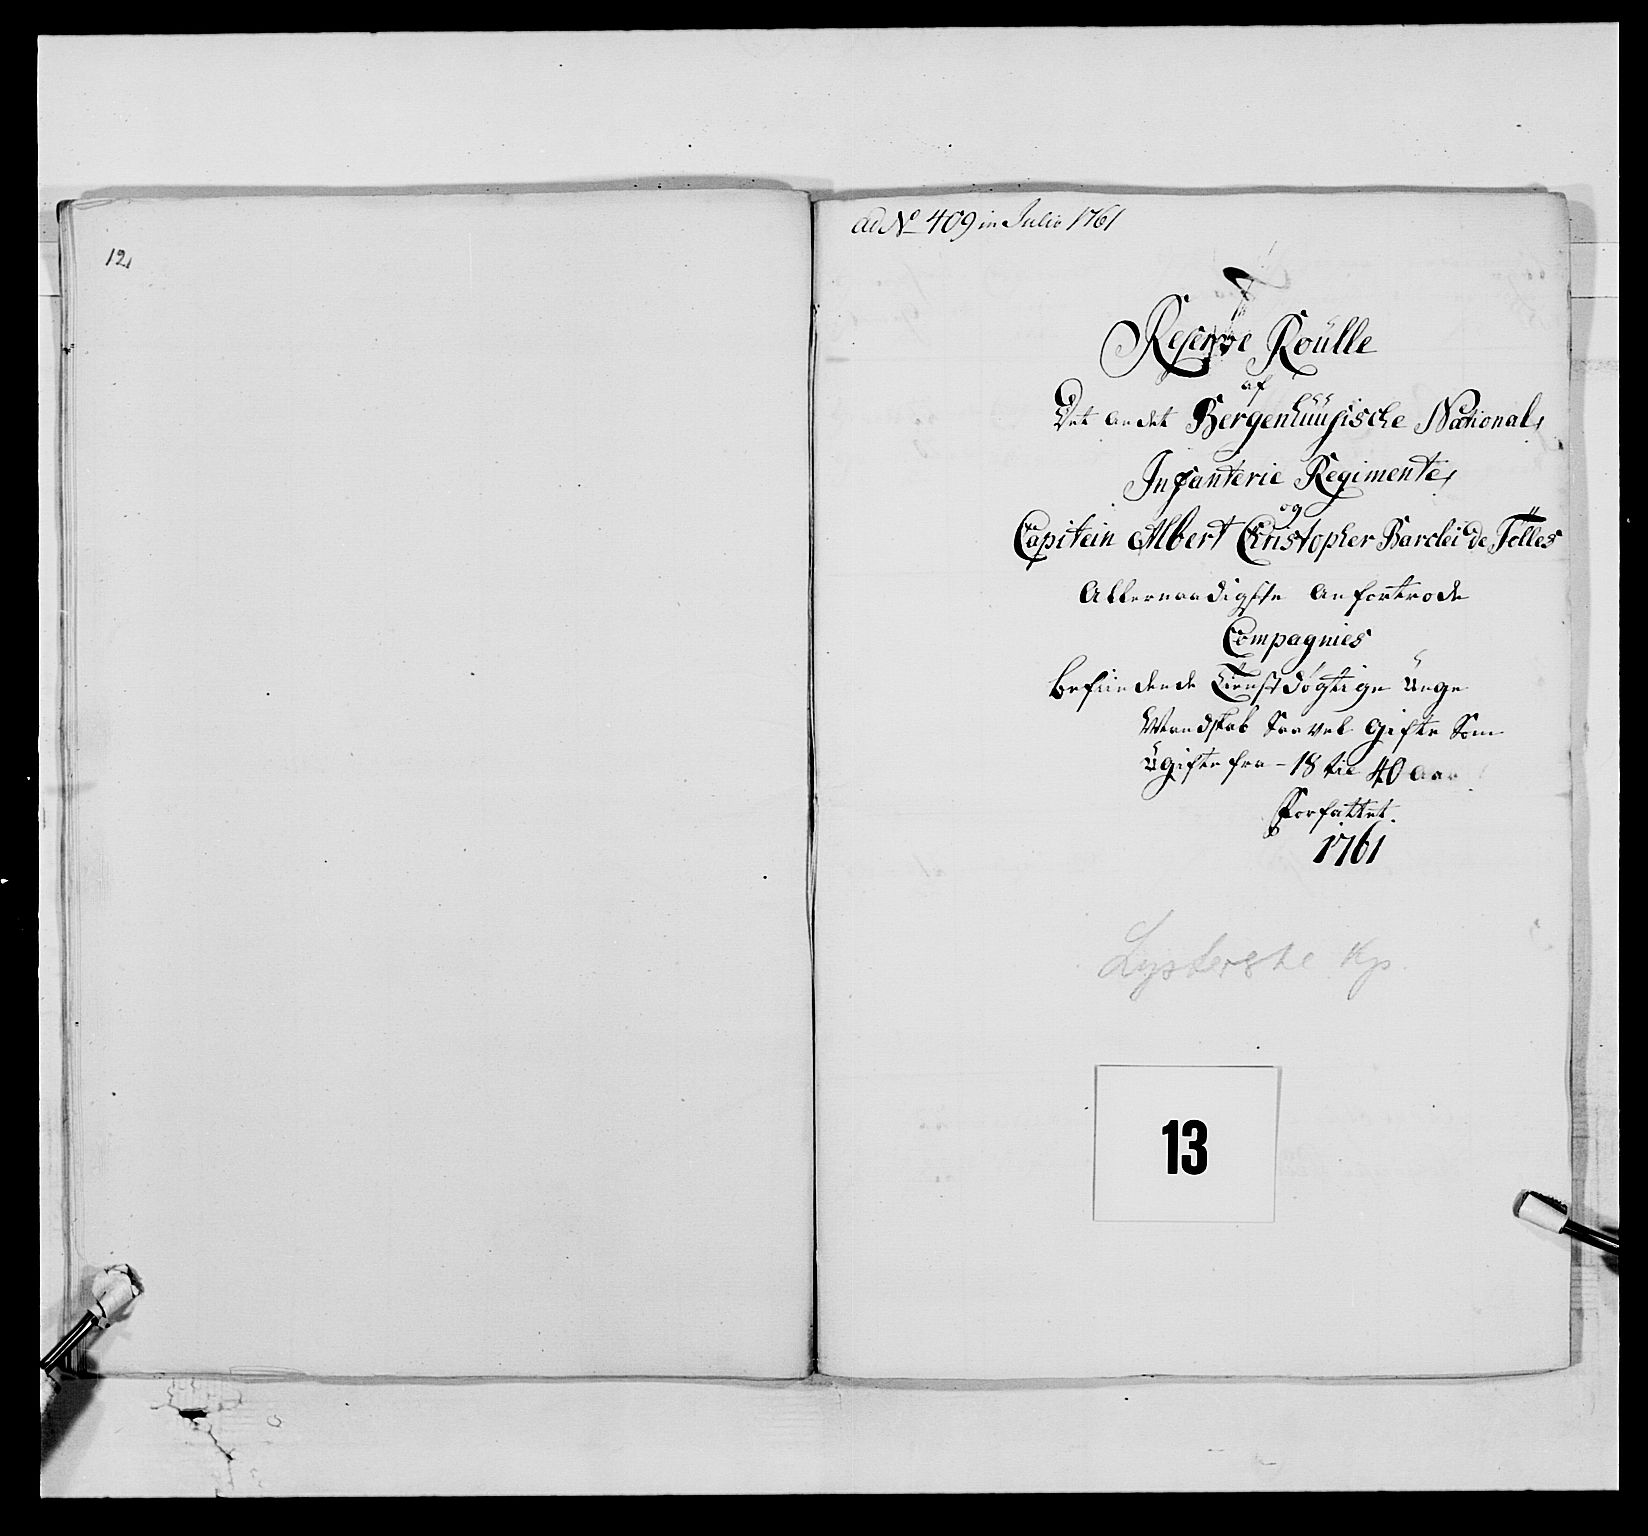 12,
ad No 409 in Julio 1761
Reserve Roülle
af
Det andet Bergenhuusische National,
Infanterie Regimente,
og
Capitein Albert Christopher Barclei de Tolles
Allernaadigste Anfortrode
Compagnies
befindende Tienstdögtige Unge
Mandskab saavel gifte som
Ugifte fra - 18 til 40 Aar
Forfattet.
1761
Lysterske Kp.
13